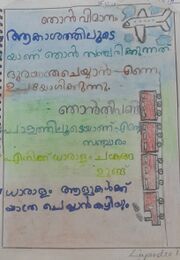 ഞാൻ വിമാനം
ആകാശത്തിലൂടെ
യാണ് ഞാൻ സഞ്ചരിക്കുന്നത്
ദൂരയാത്രചെയ്യാൻ എന്നെ
ഉപയോഗിക്കുന്നു.
ഞാൻതീവണ്ടി
പാളത്തിലൂടെയാണ് എന്റെ
സഞ്ചാരം
എനിക്ക് ധാരാളം ചക്രങ്ങ
ളുണ്ട്
ധാരാളം ആളുകൾക്ക്
യാത്ര ചെയ്യാൻകഴിയും